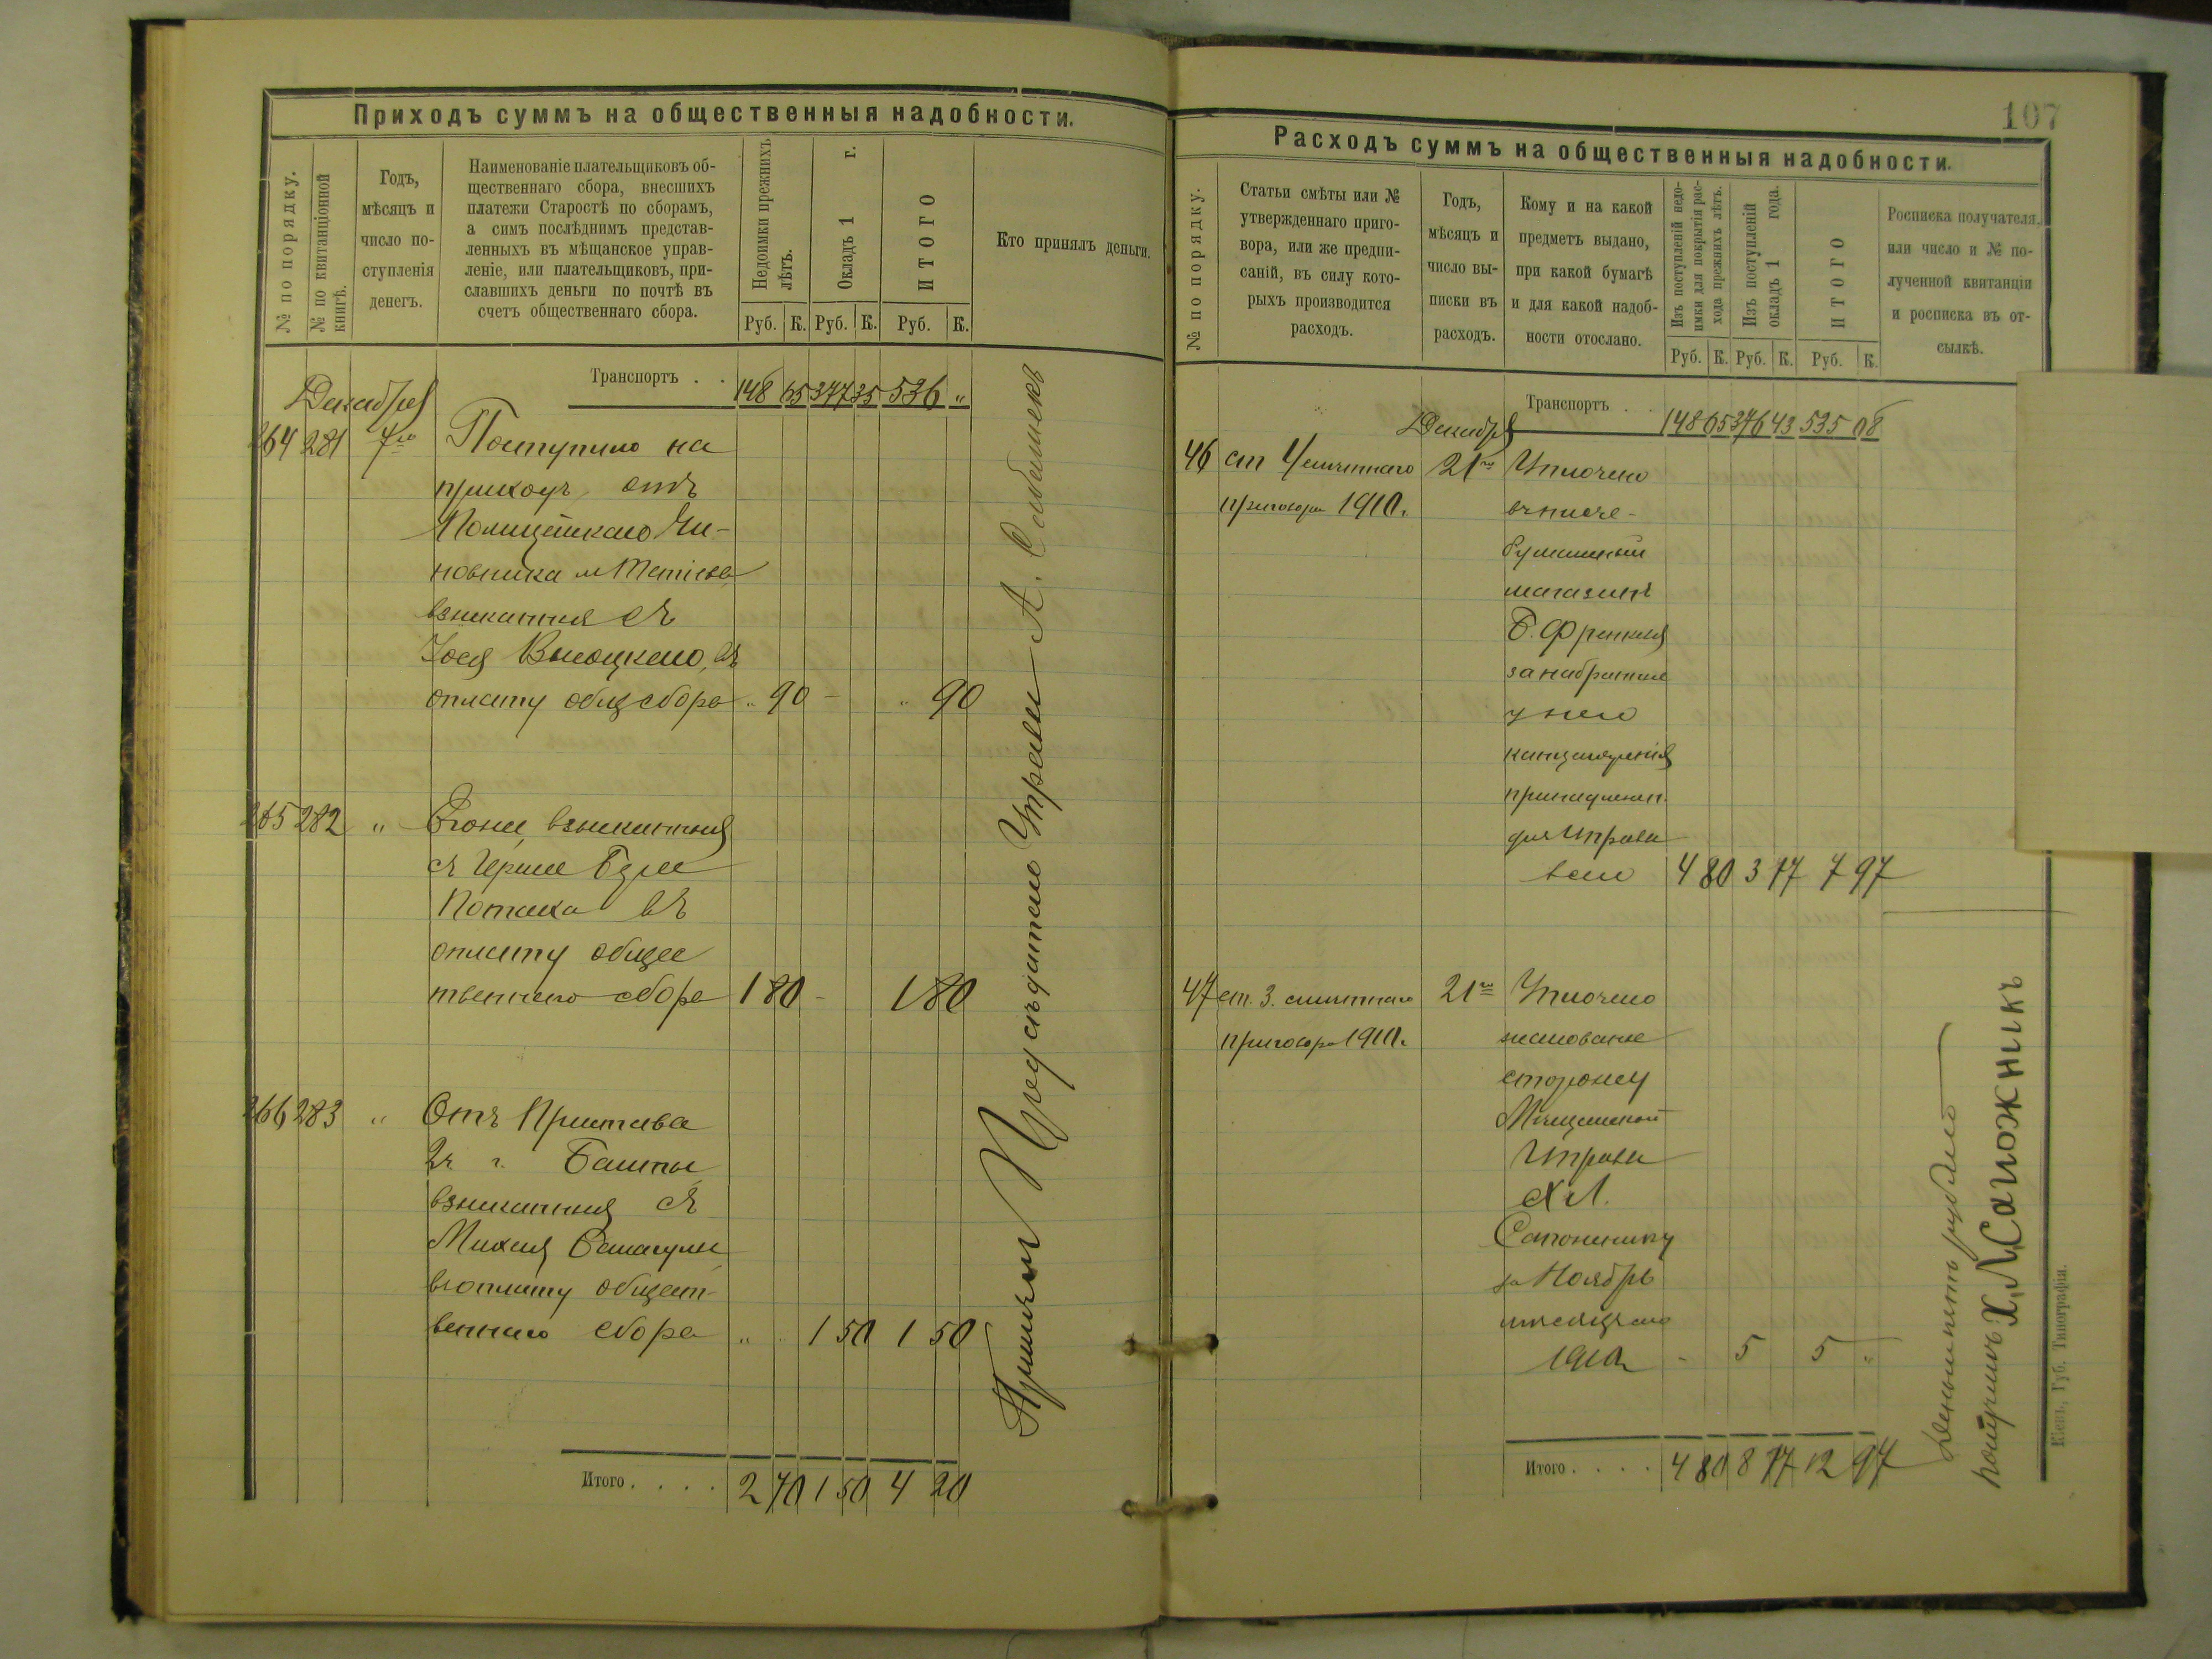 Приходъ суммъ на общественныя надобности.
№ по порядку.
№ по квитанціонной
книгѣ.
Годъ,
мѣсяцъ и
число по-
ступленія
денегъ.
Наименованіе плательщиковъ об-
щественнаго сбора, внесшихъ
платежи Старостѣ по сборамъ,
а симъ послѣднимъ представ-
ленныхъ въ мѣщанское управ-
леніе, или плательщиковъ, при-
славшихъ деньги по почтѣ въ
счетъ общественнаго сбора.
Недоимки прежнихъ
лѣтъ.
Окладъ 1 г.
ИТОГО
Руб. К. Руб. К. Руб. К.
Кто принялъ деньги.
Транспортъ . . 148 65 377 35 536 "
Декабря
264 281 7го Поступило на
приходъ отъ
Полицейскаго Чи-
новника м
взысканныя съ
Высоцкаго, въ
оплату общ сбора " 90 - " 90
265 282 " взысканныя
съ Герша
Потаха въ
оплату общес
твеннаго сбора 1 80 - 1 80
266 283 " Отъ Пристава
2ч г. Балты
взысканныя съ
Михеля
въ оплату общест-
веннаго сбора " 1 50 1 50
Итого . . . . 2 70 1 50 4 20
Принялъ Предсѣдатель Управы А.
107
Расходъ суммъ на общественныя надобности.
№ по порядку.
Статьи смѣты или №
утвержденнаго приго-
вора, или же предпи-
саній, въ силу кото-
рыхъ производится
расходъ.
Годъ,
мѣсяцъ и
число вы-
писки въ
расходъ.
Кому и на какой
предметъ выдано,
при какой бумагѣ
и для какой надоб-
ности отослано.
Изъ поступленій недо-
имки для покрытія рас-
хода прежнихъ лѣтъ.
Изъ поступленій
окладъ 1 года.
ИТОГО
Руб. К. Руб. К. Руб. К.
Росписка получателя,
или число и № по-
лученной квитанціи
и росписка въ от-
сылкѣ.
Транспортъ . . . 148 65 376 43 535 08
Декабря
46 ст 4 смѣтнаго 21го Уплочено
приговора 1910г. въ писче-
бумажный
магазинъ
Б. Френкеля
за набранные
у него
канцелярскія
принадлежн.
для Управы
всего 4 80 3 17 7 97
47 ст. 3. смѣтнаго 21го Уплочено
приговора 1910г. жалованье
сторожу
Мѣщанской
Управы
Х Л.
Сапожнику
за Ноябрь
мѣсяцъ
1910г - 5 5 "
Итого . . . . 4 80 8 17 12 97
Деньги пять рублей
получилъ: Х. Л. Сапожникъ
Кіевъ, Губ. Типографія.